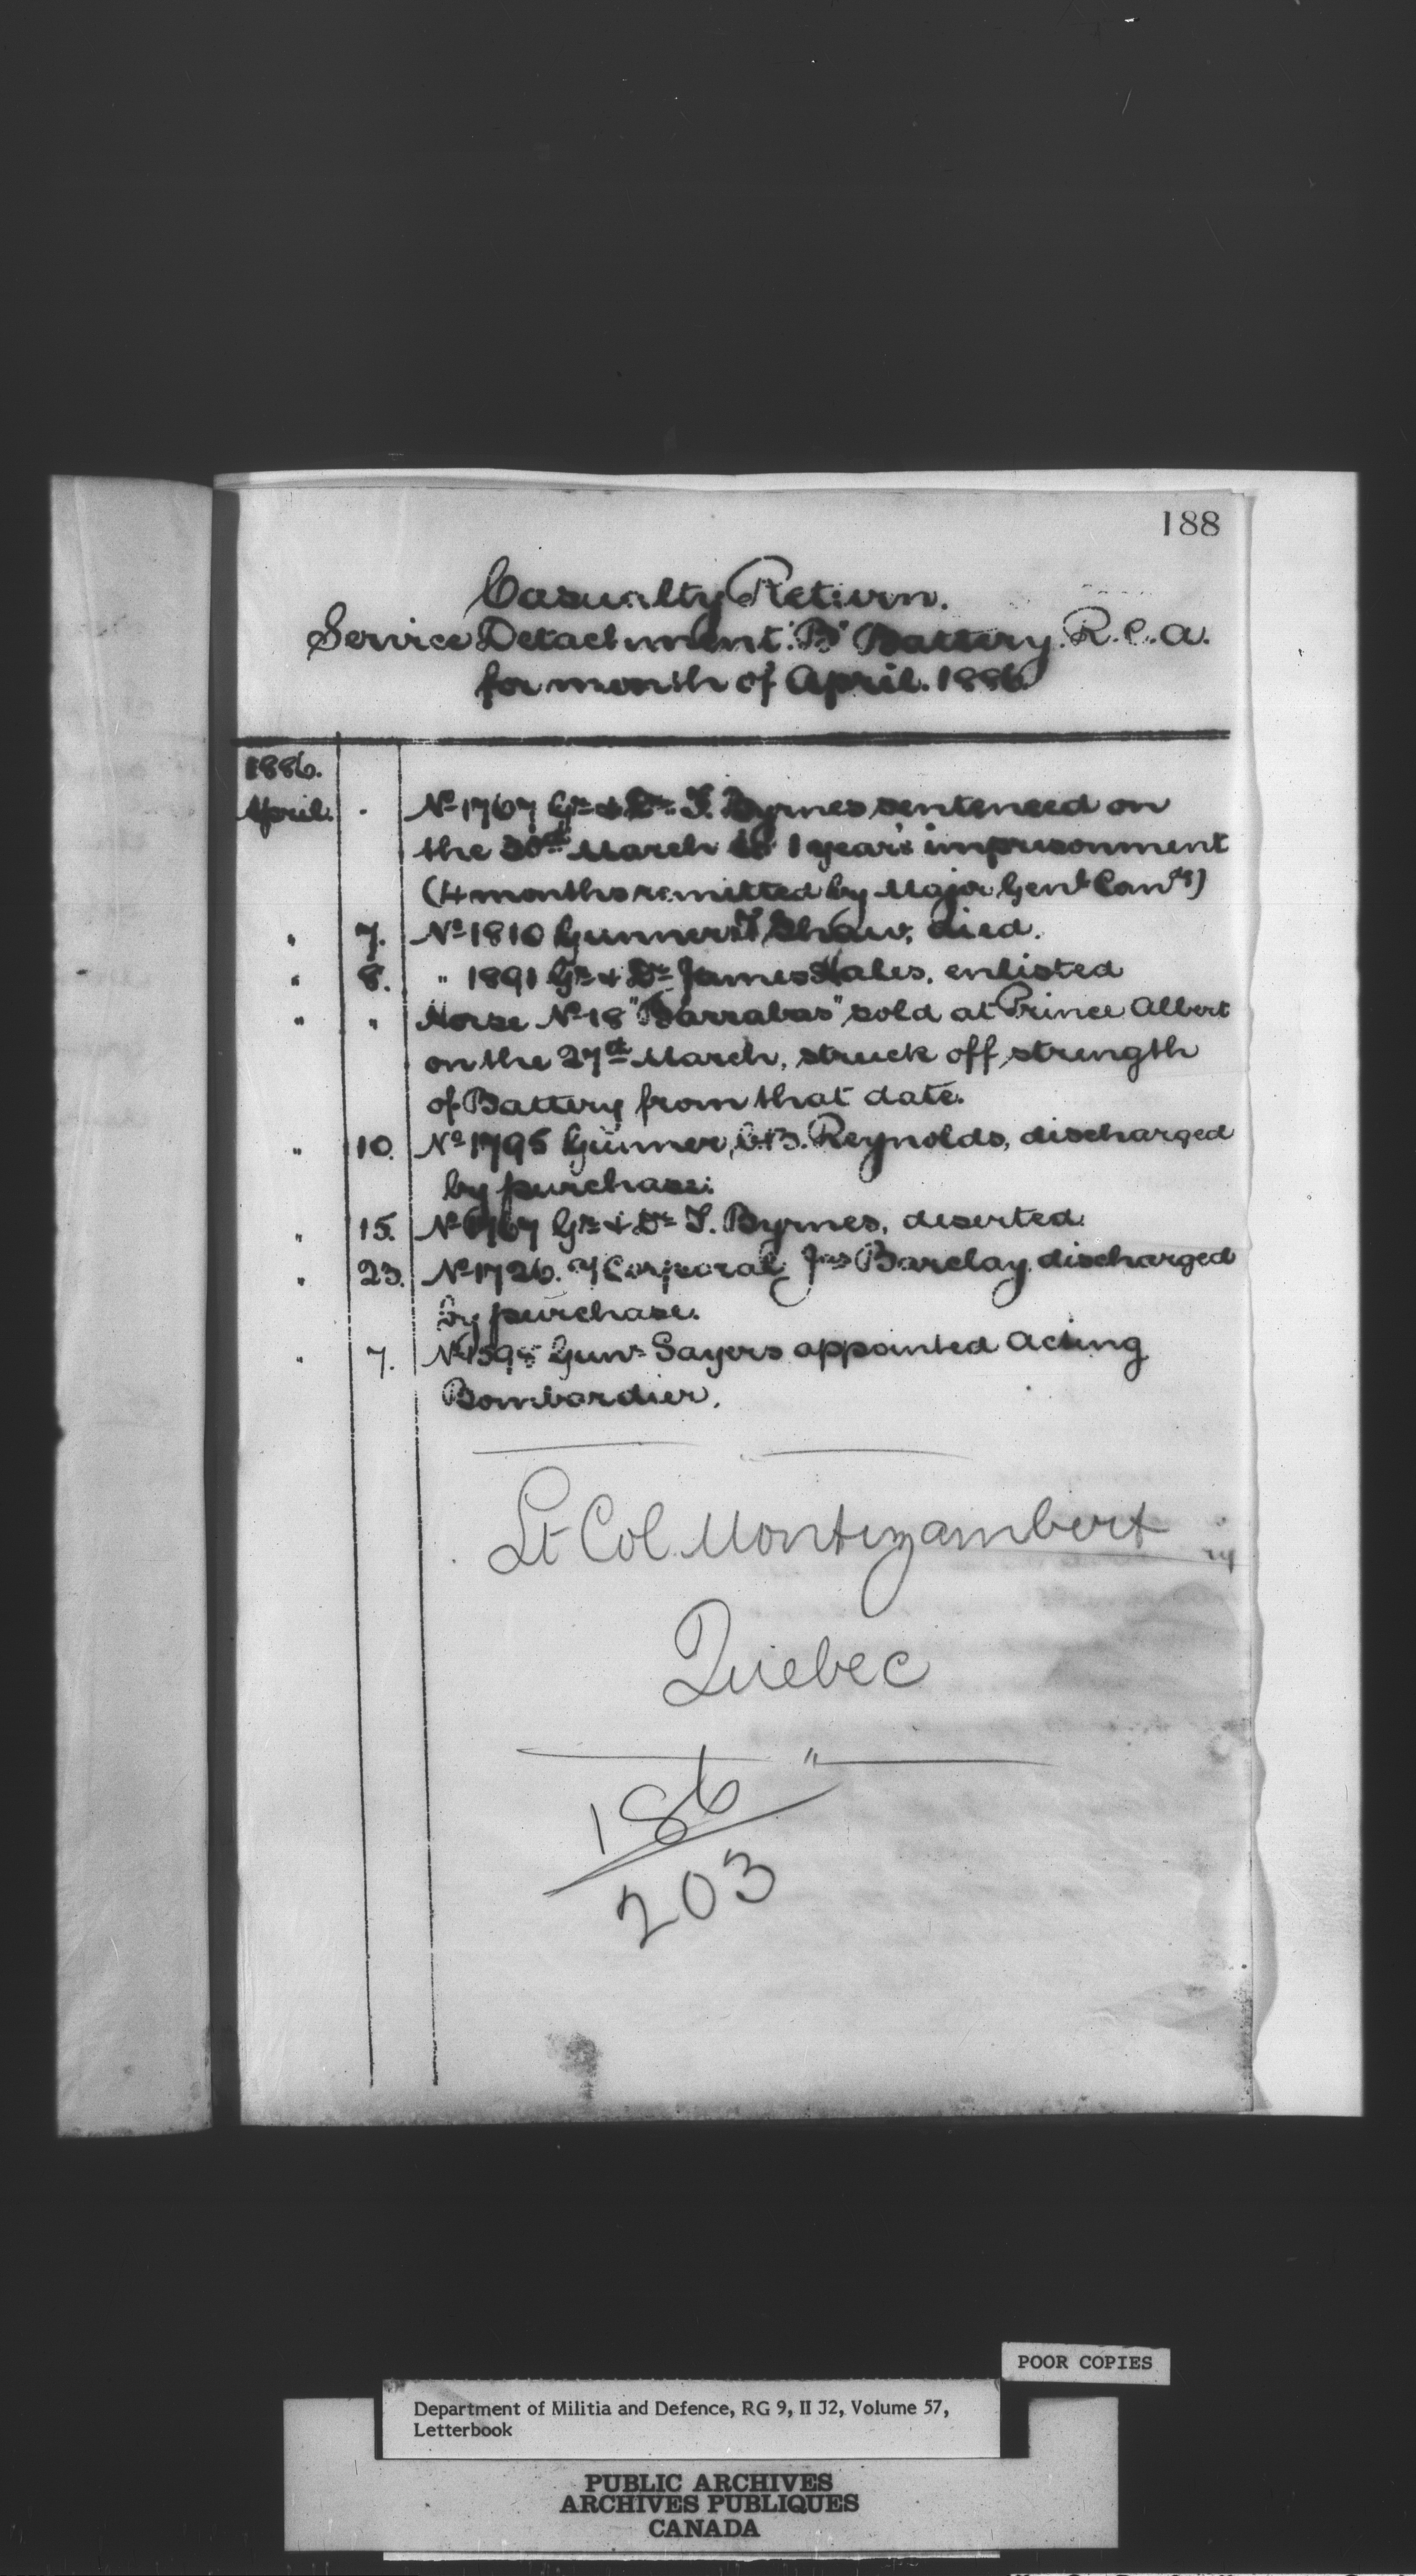 188
Casualty Return.
Service Detachment "B" Battery. R.C.A.
for month of April. 1886.
1886.
April. . No 1767 Gr & Dr T. Byrnes sentenced on
the 30th March to 1 year's imprisonment
(4 months remitted by Major Genl Comdg)
" 7. No 1810 Gunner T Shaw, died.
" 8. " 1891 Gr & Dr James Hales, enlisted
" " Horse No 18 "Barrabas" sold at Prince Albert
on the 27th March, struck off strength
of Battery from that date.
" 10. No 1795 Gunner, Reynolds, discharged
by purchase.
" 15. No 1767 Gr & Dr T. Byrnes, deserted.
" 23. No 1726. Corporal Jas Barclay discharged
by purchase.
" 7. Gunr Sayers appointed Acting
Bombardier.
Lt Col Montizambert
Quebec
"
186
203
POOR COPIES
Department of Militia and Defence, RG 9, II J2, Volume 57,
Letterbook
PUBLIC ARCHIVES
ARCHIVES PUBLIQUES
CANADA